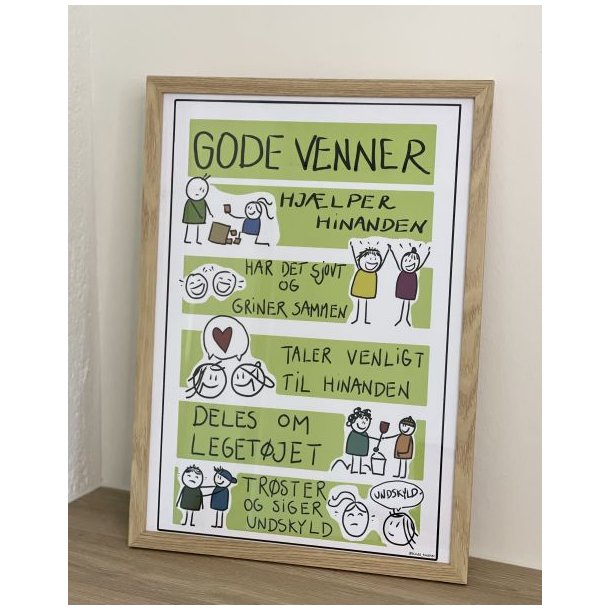 GODE VENNER
HJÆLPER
HINANDEN
HAR DET SJOVT
OG
GRINER SAMMEN
TALER VENLIGT
TIL HINANDEN
DELES OM
LEGETØJET
TRØSTER
OG SIGER
UNDSKYLD
UNDSKYLD